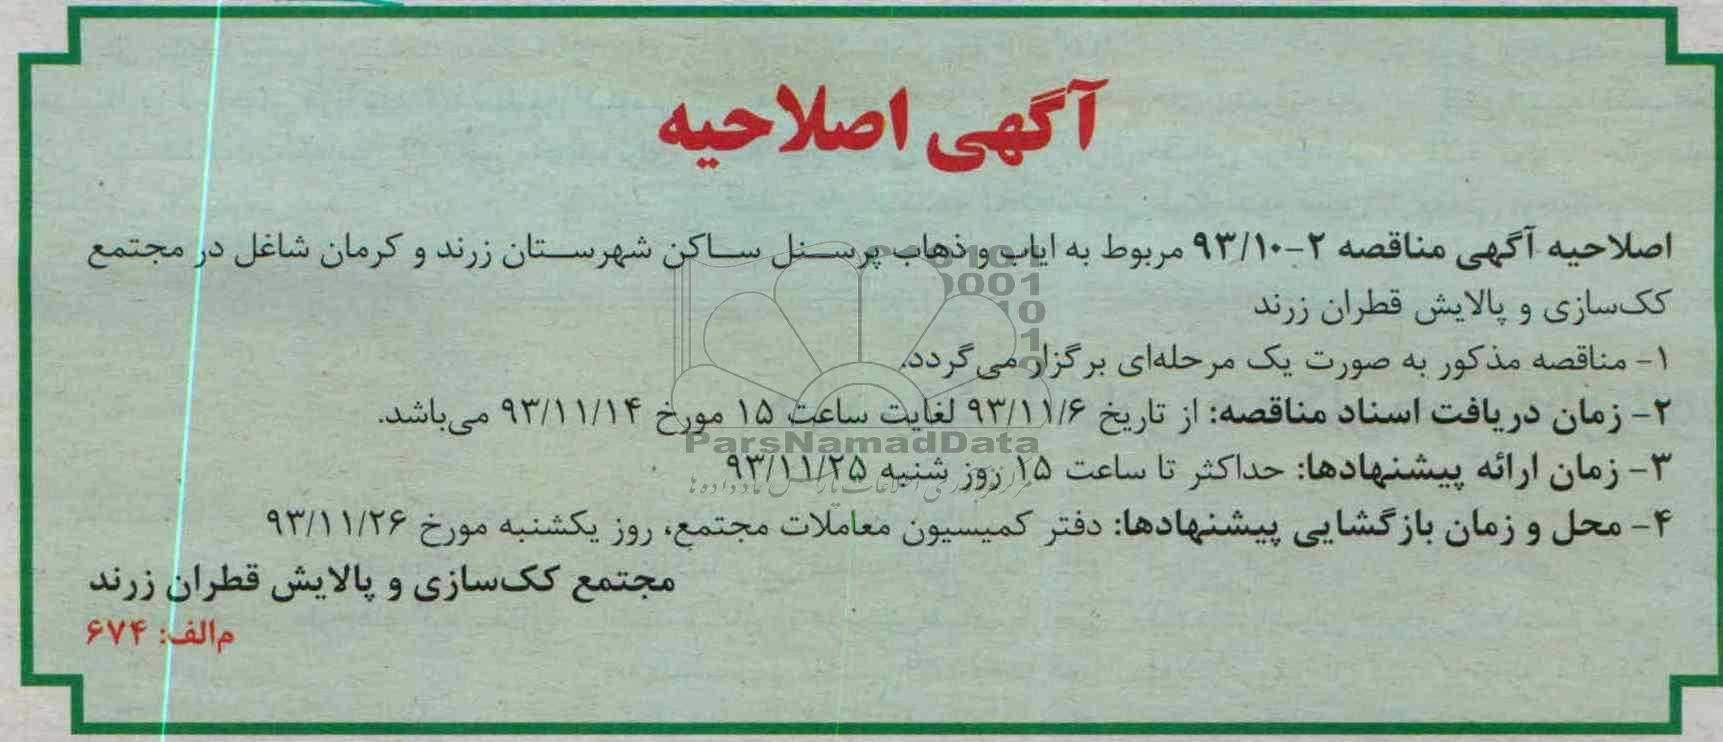 آگهی اصلاحیه
اصلاحیه آگهی مناقصه ۲-۹۳/۱۰ مربوط به ایاب و ذهاب پرسنل ساکن شهرستان زرند و کرمان شاغل در مجتمع
کک‌سازی و پالایش قطران زرند
۱- مناقصه مذکور به صورت یک مرحله‌ای برگزار می‌گردد.
۲- زمان دریافت اسناد مناقصه: از تاریخ ۹۳/۱۱/۶ لغایت ساعت ۱۵ مورخ ۹۳/۱۱/۱۴ می‌باشد.
۳- زمان ارائه پیشنهادها: حداکثر تا ساعت ۱۵ روز شنبه ۹۳/۱۱/۲۵
۴- محل و زمان بازگشایی پیشنهادها: دفتر کمیسیون معاملات مجتمع، روز یکشنبه مورخ ۹۳/۱۱/۲۶
مجتمع کک‌سازی و پالایش قطران زرند
م‌الف: ۶۷۴
ParsNamadData